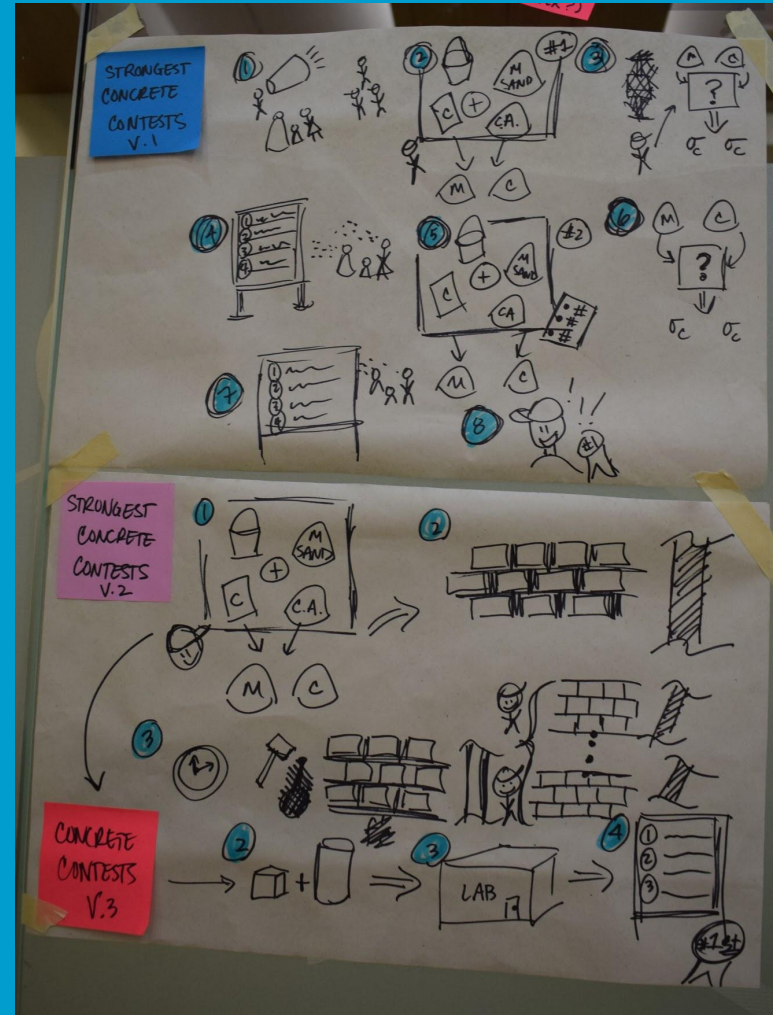 STRONGEST
CONCRETE
CONTESTS
V.1
1
2
#1
3
M
SAND
C
+
C.A.
M
C
M
C
?
σc
σc
4
1
2
3
4
5
#2
M
SAND
C
+
CA
#
#
#
M
C
6
M
C
?
σc
σc
7
1
2
3
4
8
!!!
#1
STRONGEST
CONCRETE
CONTESTS
V.2
1
M
SAND
+
C
C.A.
M
C
2
3
CONCRETE
CONTESTS
V.3
2
+
3
LAB
4
1
2
3
#1st